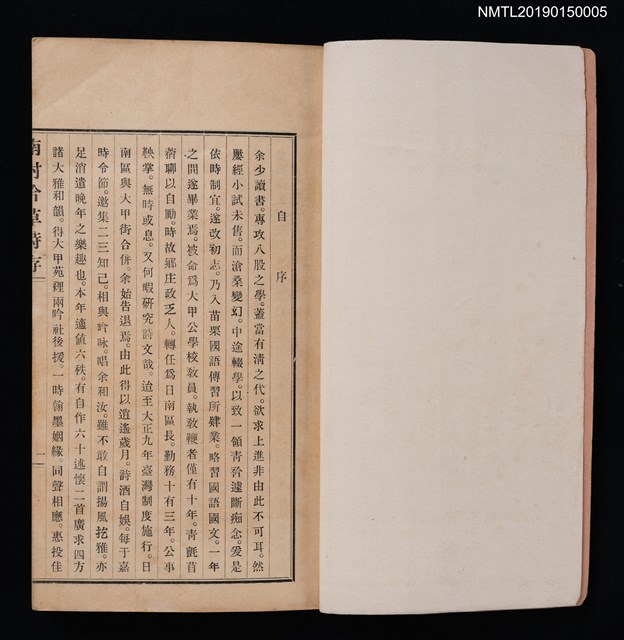 NMTL20190150005
自序
余少讀書。專攻八股之學。蓋當有淸之代。欲求上進。非由此不可耳。然
屢經小試未售。而滄桑變幻。中途輟學。以致一領靑矜。遽斷痴念。爰是
依時制宜。遂改初志。乃入苗栗國語傳習所肄業。略習國語國文。一年
之間遂畢業焉。被命爲大甲公學校敎員。執敎鞭者僅有十年。靑氈苜
蓿聊以自勵。時故鄉庄政乏人。轉任爲日南區長。勤務十有三年。公事
鞅掌。無時或息。又何暇硏究詩文哉。迨至大正九年臺灣制度施行。日
南區與大甲街合併。余始告退焉。由此得以逍遙歲月。詩酒自娛。每于嘉
時令節。邀集二三知己。相與吟咏。唱余和汝。雖不敢自謂揚風扢雅。亦
足消遣晚年之樂趣也。本年適値六秩。有自作六十述懷二首。廣求四方
諸大雅和韻。得大甲苑裡兩吟社後援。一時翰墨姻緣。同聲相應。惠投佳
南村吟草詩存
一